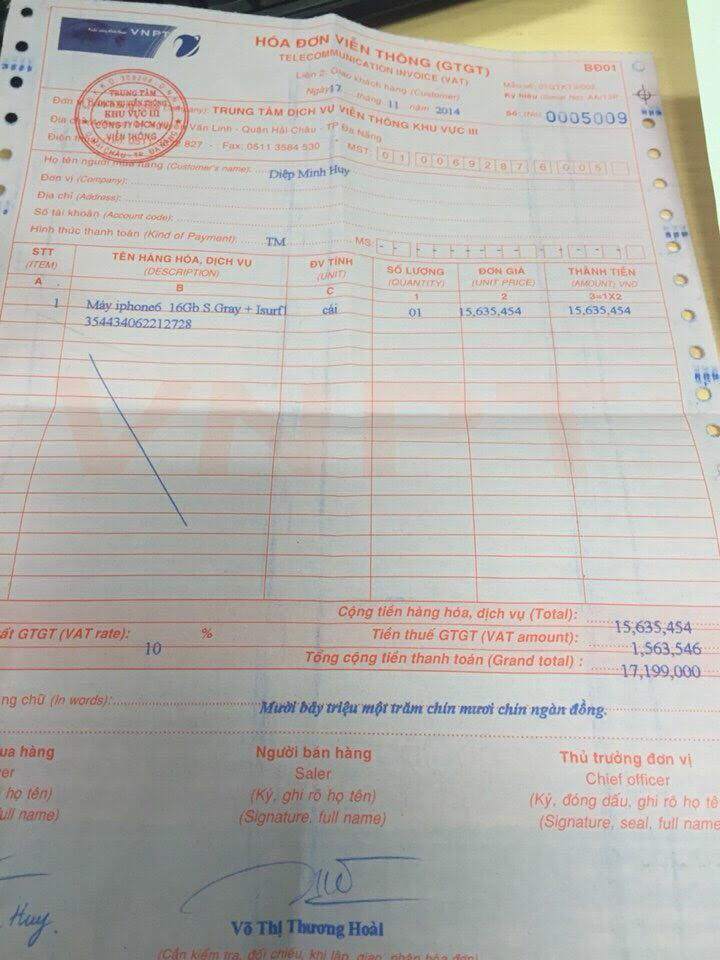 VNPT
HÓA ĐƠN VIỄN THÔNG (GTGT)
TELECOMMUNICATION INVOICE (VAT)
BĐ01
Liên 2: Giao khách hàng (Customer)
Ngày 17 tháng 11 năm 2014
Số: 0005009
TRUNG TÂM
KHU VỰC III
VIỄN THÔNG
TRUNG TÂM DỊCH VỤ VIỄN THÔNG KHU VỰC III
Văn Linh - Quận Hải Châu - TP Đà Nẵng
827 - Fax: 0511 3584 530 - MST: 0 1 0 0 6 9 2 8 7 6 0 0 5
Họ tên người mua hàng (Customer's name): Diệp Minh Huy
Đơn vị (Company):
Địa chỉ (Address):
Số tài khoản (Account code):
Hình thức thanh toán (Kind of Payment): TM MS:
STT TÊN HÀNG HÓA, DỊCH VỤ ĐV TÍNH SỐ LƯỢNG ĐƠN GIÁ THÀNH TIỀN
(ITEM) (DESCRIPTION) (UNIT) (QUANTITY) (UNIT PRICE) (AMOUNT) VND
A B C 1 2 3=1X2
1 Máy iphone6 16Gb S.Gray + Isurf1 cái 01 15,635,454 15,635,454
354434062212728
VNPT
Cộng tiền hàng hóa, dịch vụ (Total): 15,635,454
ất GTGT (VAT rate): 10 % Tiền thuế GTGT (VAT amount): 1,563,546
Tổng cộng tiền thanh toán (Grand total) : 17,199,000
ng chữ (In words): Mười bảy triệu một trăm chín mươi chín ngàn đồng.
ua hàng Người bán hàng Thủ trưởng đơn vị
er Saler Chief officer
họ tên) (Ký, ghi rõ họ tên) (Ký, đóng dấu, ghi rõ họ tê
ull name) (Signature, full name) (Signature, seal, full name
Huy.
Võ Thị Thương Hoài
(Cần kiểm tra, đối chiếu, khi lập, giao, nhận hóa đơn)